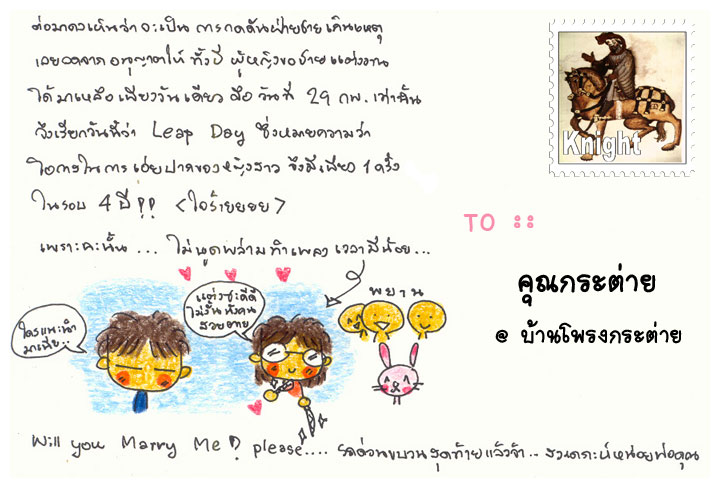 ต่อมาคงเห็นว่า จะเป็น การกดดันฝ่ายชาย เกินเหตุ
เลยลดจาก อนุญาตให้ ทั้งปี ผู้หญิงขอชายแต่งงาน
ได้มาเหลือ เพียงวันเดียว คือ วันที่ 29 กพ. เท่านั้น
จึงเรียกวันนี้ว่า Leap Day ซึ่งหมายความว่า
โอกาสในการ เอ่ยปากของหญิงสาว จึงมีเพียง 1 ครั้ง
ในรอบ 4 ปี !? <ใจร้ายยยย>
เพราะฉะนั้น ... ไม่พูดพล่ามทำเพลง เวลามีน้อย...
Knight
TO ::
คุณกระต่าย
@ บ้านโพรงกระต่าย
ใครแนะนำ
มาเนี่ย..
แต่งซะดีดี
ไม่งั้นทั้งคน
สวยอาย
พยาน
Will you Marry Me? please.... รถด่วนขบวนสุดท้ายแล้วจ้า.. สงเคราะห์หน่อยพ่อคุณ